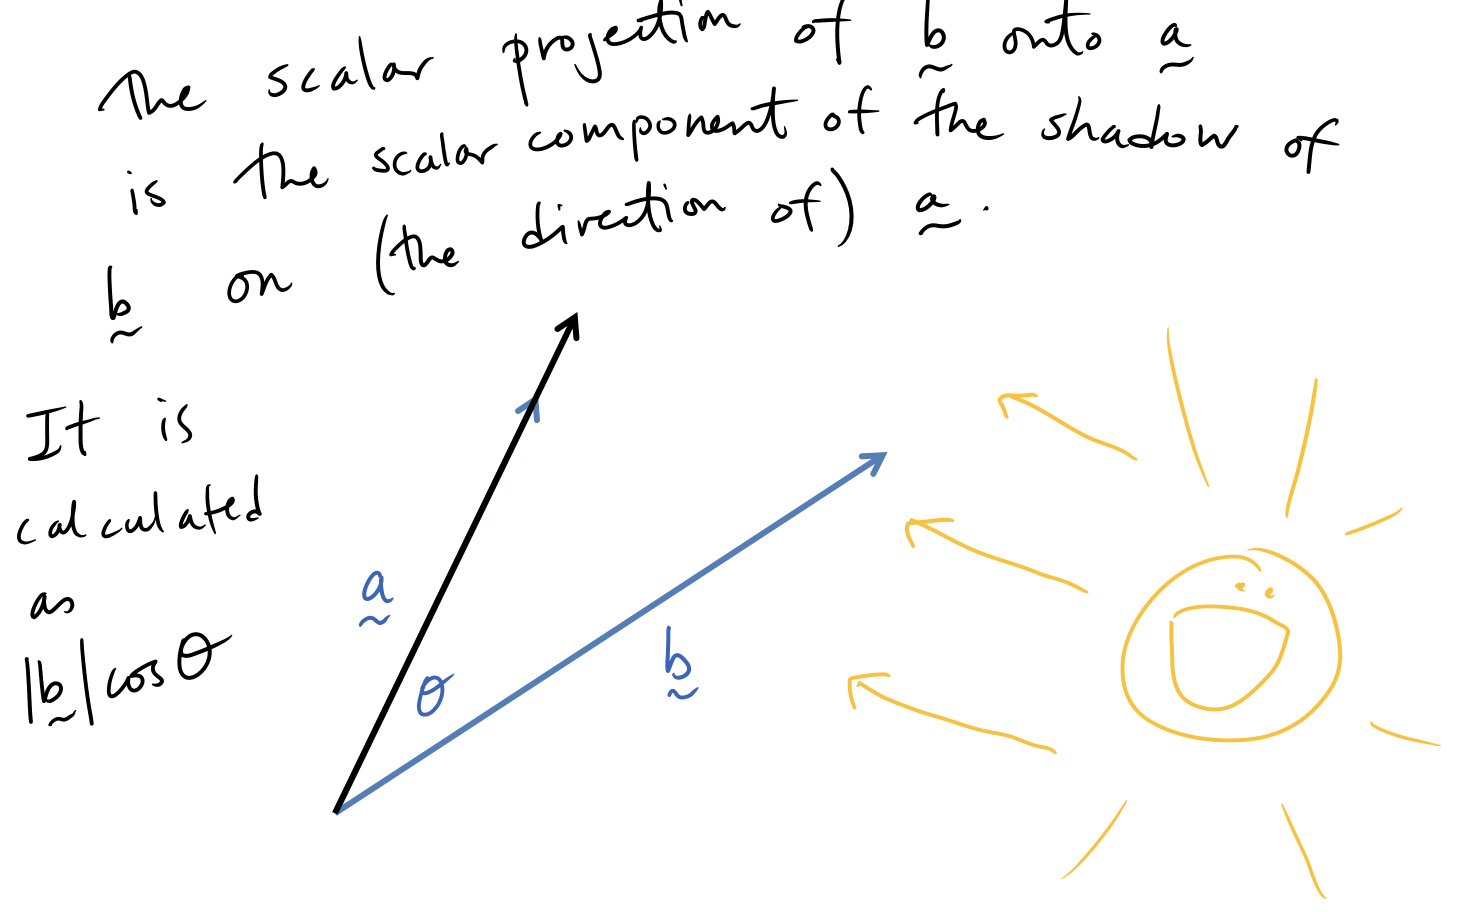 The scalar projection of b onto a
is the scalar component of the shadow of
b on (the direction of) a.
It is
calculated
as
|b|cosθ
a
θ
b